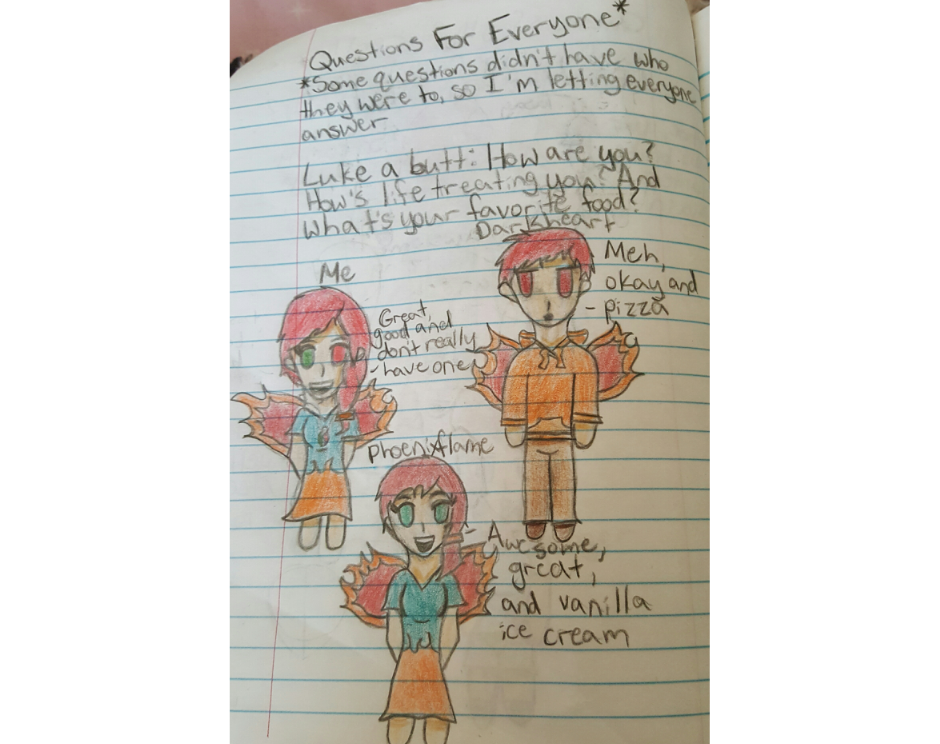 Questions For Everyone*
*Some questions didn't have who
they were to, so I'm letting everyone
answer.
Luke a butt: How are you?
How's life treating you? And
what's your favorite food?
Darkheart
Meh,
okay and
- pizza
Me
Great,
good and
don't really
- have one
Phoenixflame
- Awesome,
great,
and vanilla
ice cream